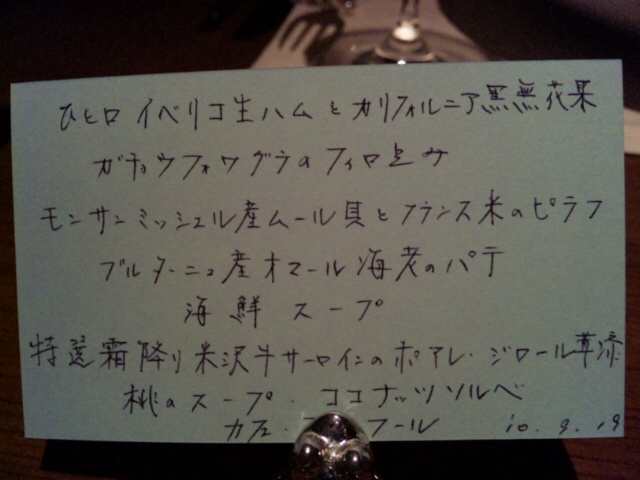 ひと口 イベリコ生ハム と カリフォルニア黒無花果
ガチョウフォワグラのフィロ包み
モンサンミッシェル産ムール貝とフランス米のピラフ
ブルターニュ産オマール海老のパテ
海鮮 スープ
特選霜降り米沢牛サーロインのポアレ・ジロール茸添
桃のスープ・ココナッツソルベ
カフェ・ フール 10.9.19